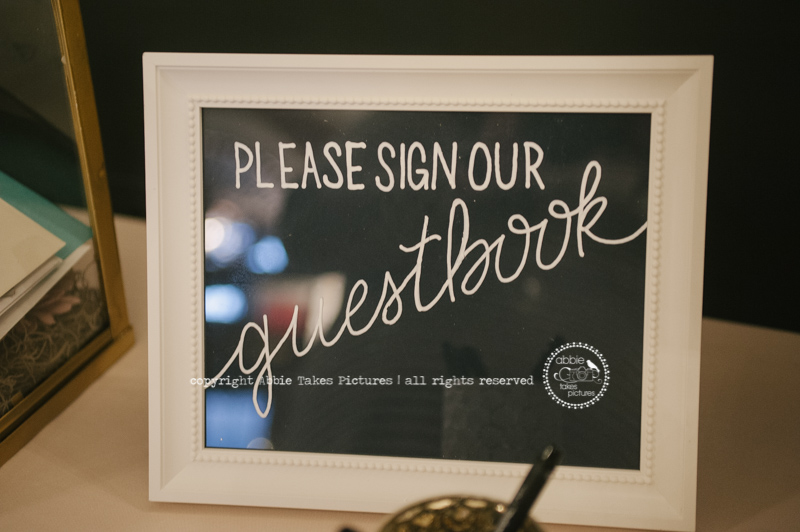 PLEASE SIGN OUR
guestbook
copyright Abbie Takes Pictures | all rights reserved
abbie
takes
pictures